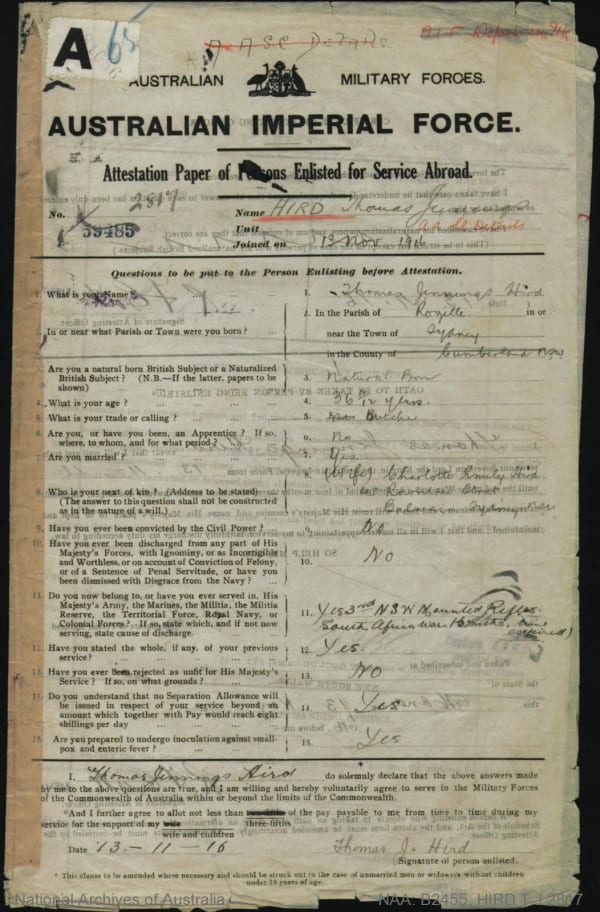 A 65
A.I.F. Depots in UK
A ASC DETAILS
AUSTRALIAN MILITARY FORCES.
AUSTRALIAN IMPERIAL FORCE.
Attestation Paper of Persons Enlisted for Service Abroad.
No. 2817
39485
Name HIRD Thomas Jennings
Unit
Joined on 13 Nov 1916
Questions to be put to the Person Enlisting before Attestation.
1. What is your Name? ... 1. Thomas Jennings Hird
2. In or near what Parish or Town were you born? ... 2. In the Parish of Rozelle in or
near the Town of Sydney
in the County of Cumberland NSW
3. Are you a natural born British Subject or a Naturalized
British Subject? (N.B.—If the latter, papers to be
shown) 3. Natural Born
4. What is your age? ... 4. 36 /12 years.
5. What is your trade or calling? ... 5. Butcher
6. Are you, or have you been, an Apprentice? If so,
where, to whom, and for what period? 6. No
7. Are you married? ... 7. Yes
8. Who is your next of kin? (Address to be stated) 8. (Wife) Charlotte Emily Hird
(The answer to this question shall not be construed Street
as in the nature of a will.) Balmain Sydney NSW
9. Have you ever been convicted by the Civil Power? 9. No
10. Have you ever been discharged from any part of His
Majesty's Forces, with Ignominy, or as Incorrigible
and Worthless, or on account of Conviction of Felony,
or of a Sentence of Penal Servitude, or have you
been dismissed with Disgrace from the Navy? ... 10. No
11. Do you now belong to, or have you ever served in, His
Majesty's Army, the Marines, the Militia, the Militia
Reserve, the Territorial Force, Royal Navy, or
Colonial Forces? If so, state which, and if not now
serving, state cause of discharge 11. Yes 3rd NSW Mounted Rifles
South African War months. time
expired)
12. Have you stated the whole, if any, of your previous
service? ... 12. Yes.
13. Have you ever been rejected as unfit for His Majesty's
Service? If so, on what grounds? 13. No
14. Do you understand that no Separation Allowance will
be issued in respect of your service beyond an
amount which together with Pay would reach eight
shillings per day 14. Yes
15. Are you prepared to undergo inoculation against small-
pox and enteric fever? ... 15. Yes
I, Thomas Jennings Hird do solemnly declare that the above answers made
by me to the above questions are true, and I am willing and hereby voluntarily agree to serve in the Military Forces
of the Commonwealth of Australia within or beyond the limits of the Commonwealth.
*And I further agree to allot not less than of the pay payable to me from time to time during my
three-fifths
service for the support of my wife
wife and children
Date 13 - 11 - 16 Thomas J. Hird
(Signature of person enlisted.
* This clause to be amended where necessary and should be struck out in the case of unmarried men or widowers without children
under 18 years of age.
National Archives of Australia NAA: B2455, HIRD T J 2817